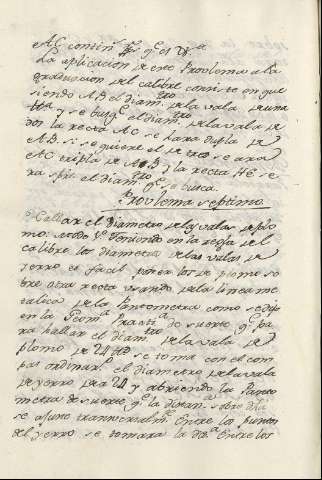 La aplicacion de este Problema a la
graduacion del calibre consiste en que
siendo AB el diam.tro de la vala de una
y se busq.e el diam.tro de la vala de
dos la recta AC se hara dupla de
AB. si se quiere el de tres se ara
AC tripla de AB y la recta HE se
ra spre. el diam.tro q.e se busca.
Problema septimo
Hallar el Diametro de las valas de plo
mo. Modo 1.o Teniendo en la regla del
calibre los diametros de las valas de
yerro es facil poner los de plomo so
bre otra recta usando de la linea me
talica de la Pantometra como se dijo
en la Geom.a Practi.a de suerte q.e pa
ra hallar el diam.tro de la vala de
plomo de 24 se toma con el com
pas ordinar.o el diametro de la vala
de yerro de a 24 y abriendo la Panto
metra de suerte q.e la distan.a sobre dha
se ajuste tranversalm.te Entre los puntos
del yerro se tomara la dis.a Entre los